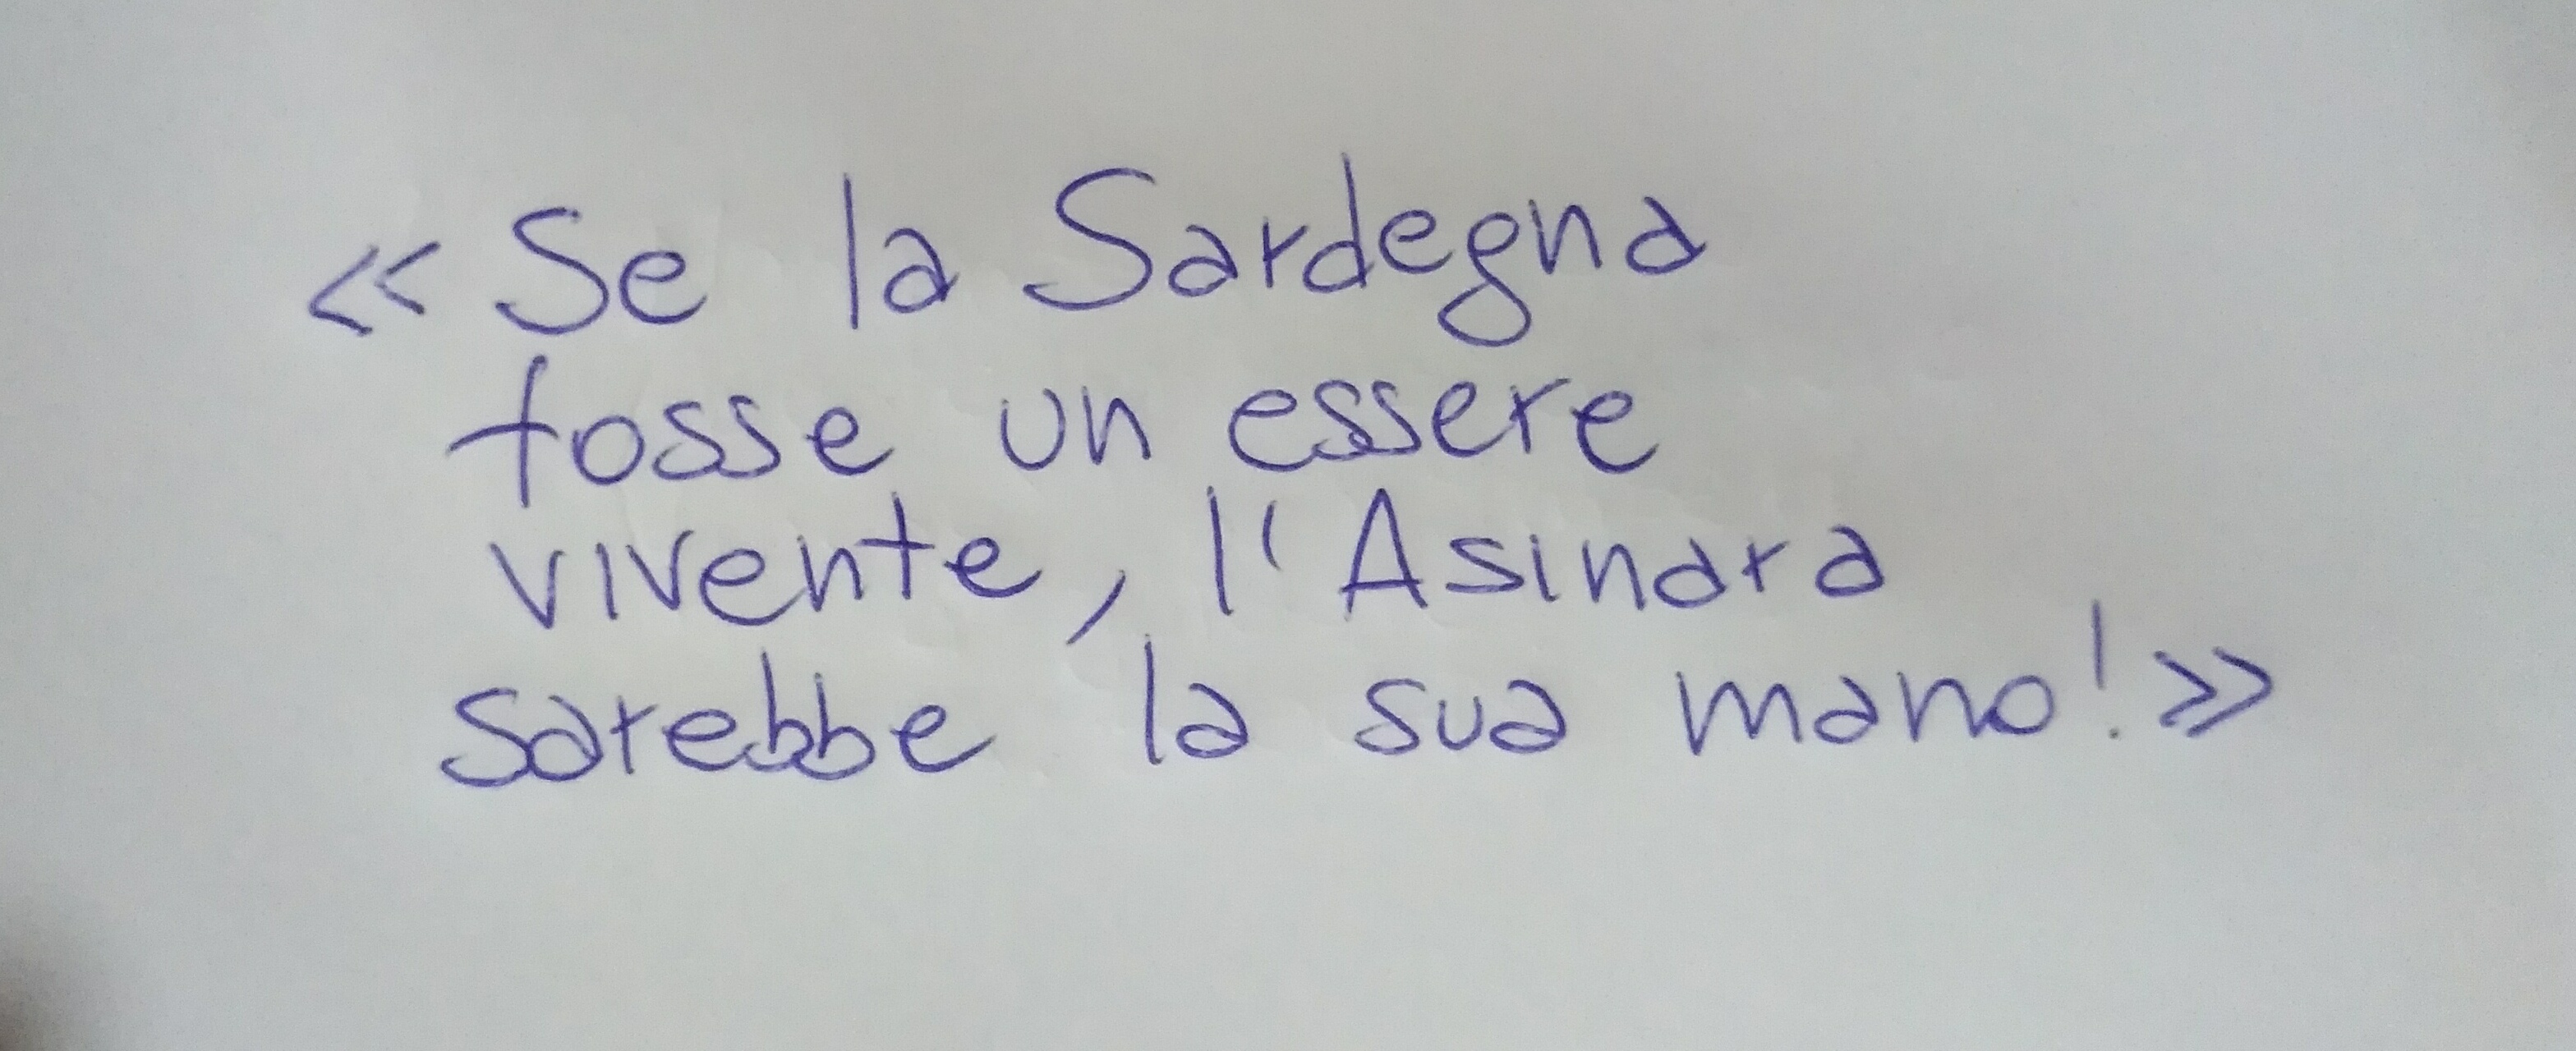 «Se la Sardegna
fosse un essere
vivente, l'Asinara
sarebbe la sua mano!»